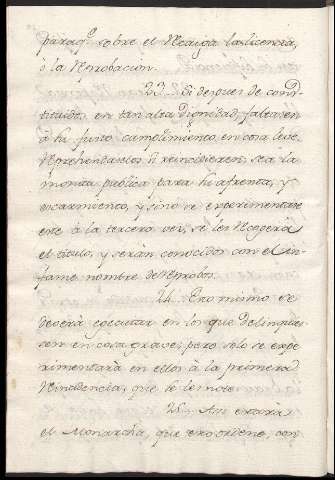 paraqᵉ sobre el Recayga la licencia,
ò la Reprobacion.
23. Si despues de cons-
tituido, en tan alta Dignidad, faltaren
à su justo cumplimiento, en cosa leve,
Reprehendanlos, si reincidieren, sea la
monita publica para su afrenta, y
escarmiento, y si no se experimentare
este à la tercera vez, se les Recogerà
el titulo, y seràn conocidos con el in-
fame nombre de Reprobos.
24. Eso mismo se
deverà egecutar en los que delinquie-
sen en cosa grave, pero solo se expe-
rimentarà en ellos à la primera
Reincidencia, que se le note.
25. Asi estarà
el Monarcha, que eso ordene, con